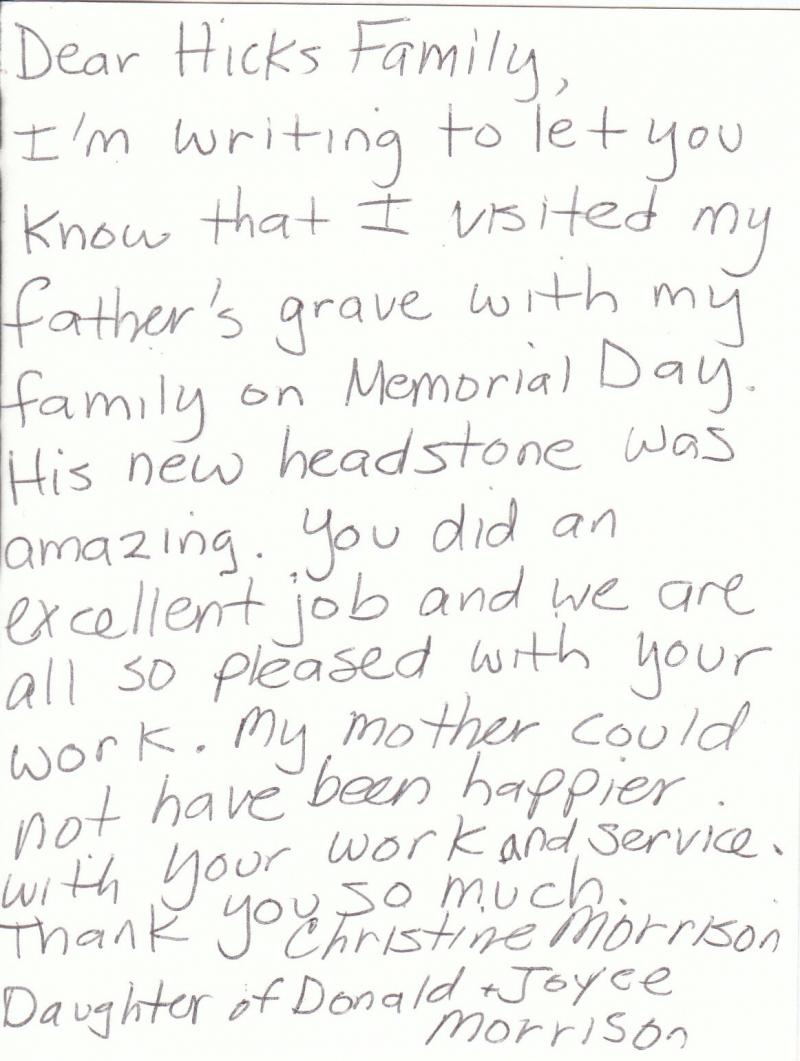 Dear Hicks Family,
I'm writing to let you
know that I visited my
father's grave with my
family on Memorial Day.
His new headstone was
amazing. You did an
excellent job and we are
all so pleased with your
work. My mother could
not have been happier.
with your work and service.
Thank you so much.
Christine Morrison
Daughter of Donald + Joyce
Morrison